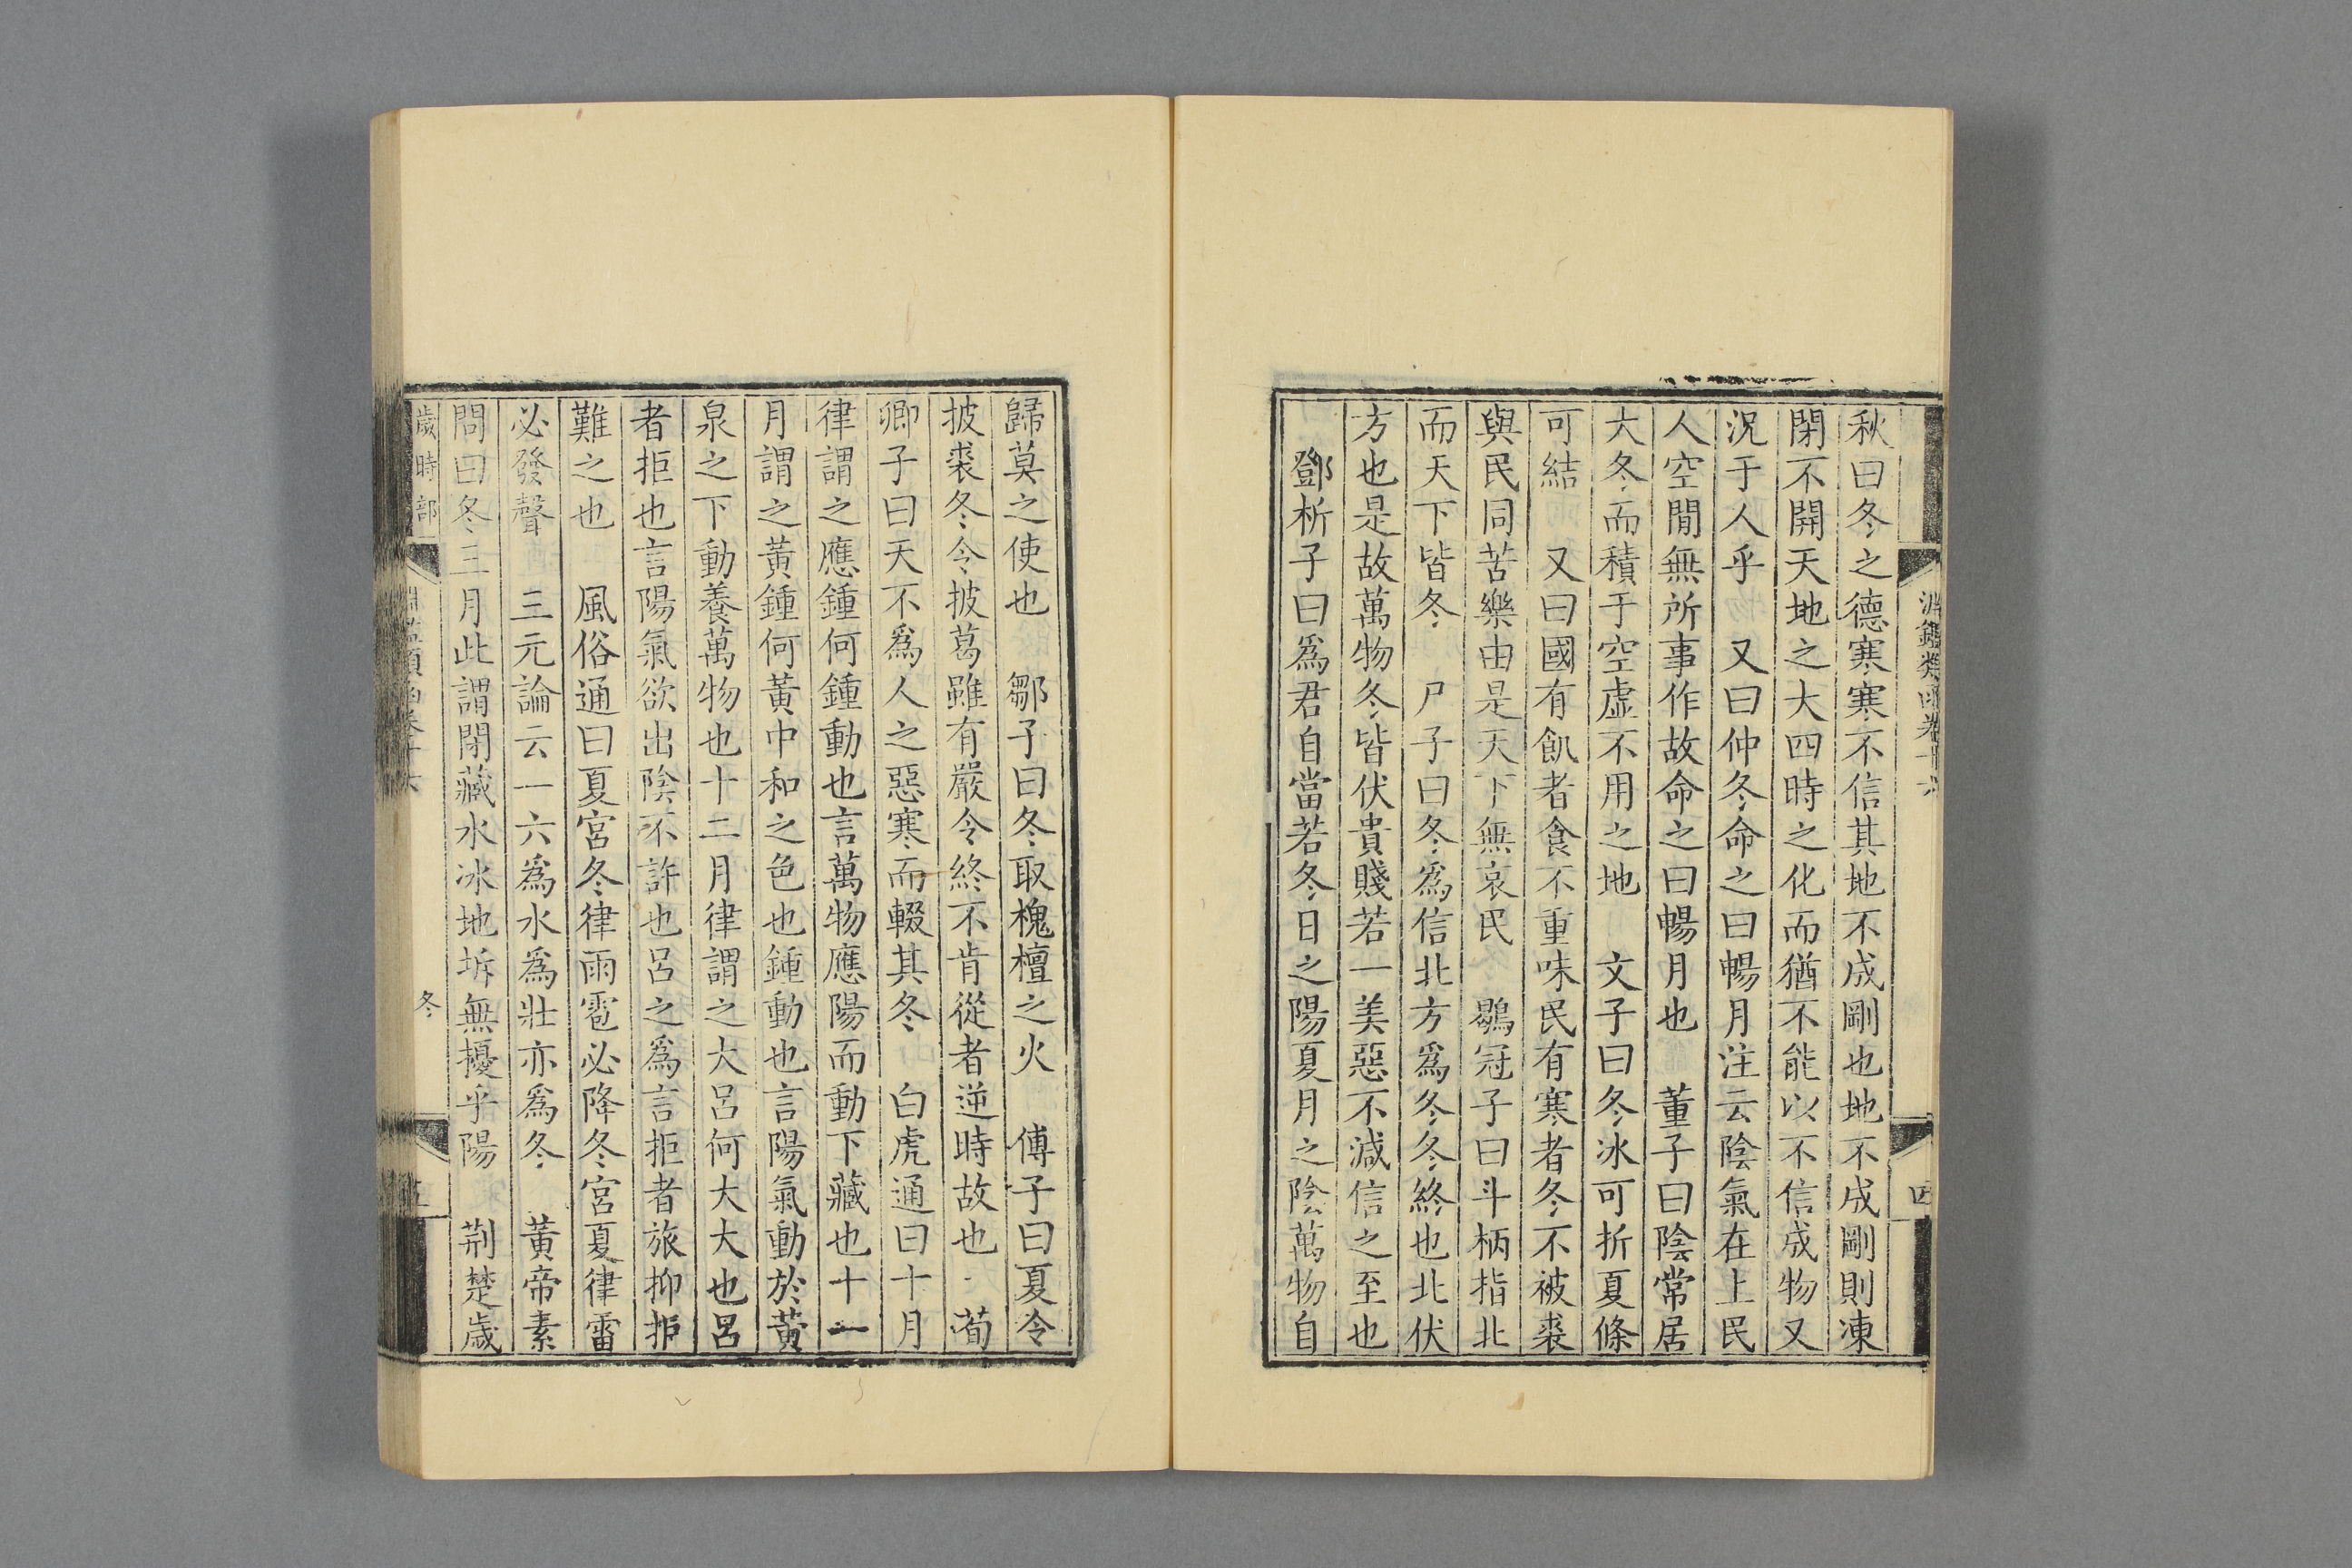 淵鑑類函卷十六
四
秋曰冬之德寒寒不信其地不成剛也地不成剛則凍
閉不開天地之大四時之化而猶不能以不信成物又
況于人乎 又曰仲冬命之曰暢月注云陰氣在上民
人空閒無所事作故命之曰暢月也 董子曰陰常居
大冬而積于空虛不用之地 文子曰冬冰可折夏條
可結 又曰國有飢者食不重味民有寒者冬不被裘
與民同苦樂由是天下無哀民 鶡冠子曰斗柄指北
而天下皆冬 尸子曰冬爲信北方爲冬冬終也北伏
方也是故萬物冬皆伏貴賤若一美惡不減信之至也
鄧析子曰爲君自當若冬日之陽夏月之陰萬物自
歸莫之使也 鄒子曰冬取槐檀之火 傅子曰夏令
披裘冬令披葛雖有嚴令終不肯從者逆時故也 荀
卿子曰天不爲人之惡寒而輟其冬 白虎通曰十月
律謂之應鍾何鍾動也言萬物應陽而動下藏也十一
月謂之黃鍾何黃中和之色也鍾動也言陽氣動於黃
泉之下動養萬物也十二月律謂之大呂何大大也呂
者拒也言陽氣欲出陰不許也呂之爲言拒者旅抑拒
難之也 風俗通曰夏宮冬律雨雹必降冬宮夏律雷
必發聲 三元論云一六爲水爲壯亦爲冬 黃帝素
問曰冬三月此謂閉藏水冰地坼無擾乎陽 荊楚歲
歲時部
淵鑑類函卷十六
冬
五